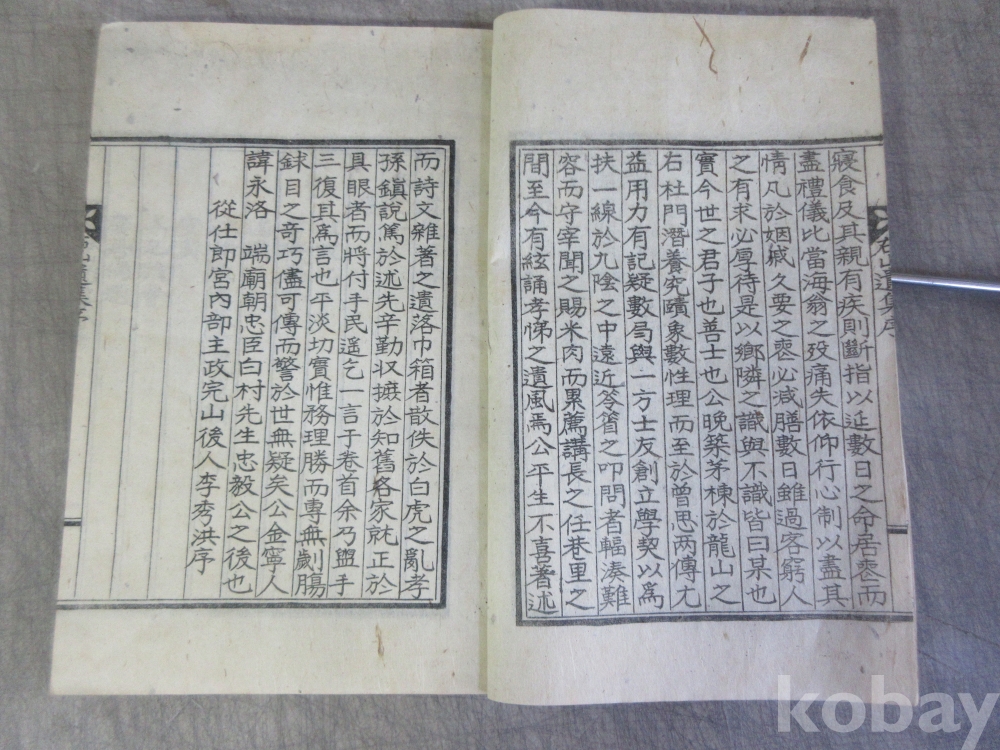 寢食及其親有疾則斷指以延數日之命居喪而
盡禮儀比當海翁之歿痛失依仰行心制以盡其
情凡於姻戚久要之喪必减膳數日雖過客窮人
之有求必厚待是以鄉隣之識與不識皆曰某也
實今世之君子也善士也公晩築茅棟於龍山之
右杜門潛養究賾象數性理而至於曾思两傳尤
益用力有記疑數㢧與一方士友創立學契以爲
扶一線於九陰之中遠近笭箵之叩問者輻湊難
容而守宰聞之賜米肉而累薦講長之任巷里之
間至今有絃誦孝悌之遺風焉公平生不喜著述
而詩文雜著之遺落巾箱者散佚於白虎之亂孝
孫鎭說篤於述先辛勤収摭於知舊各家就正於
具眼者而將付手民遥乞一言于卷首余乃盥手
三復其爲言也平淡切實惟務理勝而專無劌腸
銶目之奇巧儘可傳而警於世無疑矣公金寧人
諱永洛 端廟朝忠臣白村先生忠毅公之後也
從仕郎宮內部主政完山後人李秀洪序
遺集序
kobay